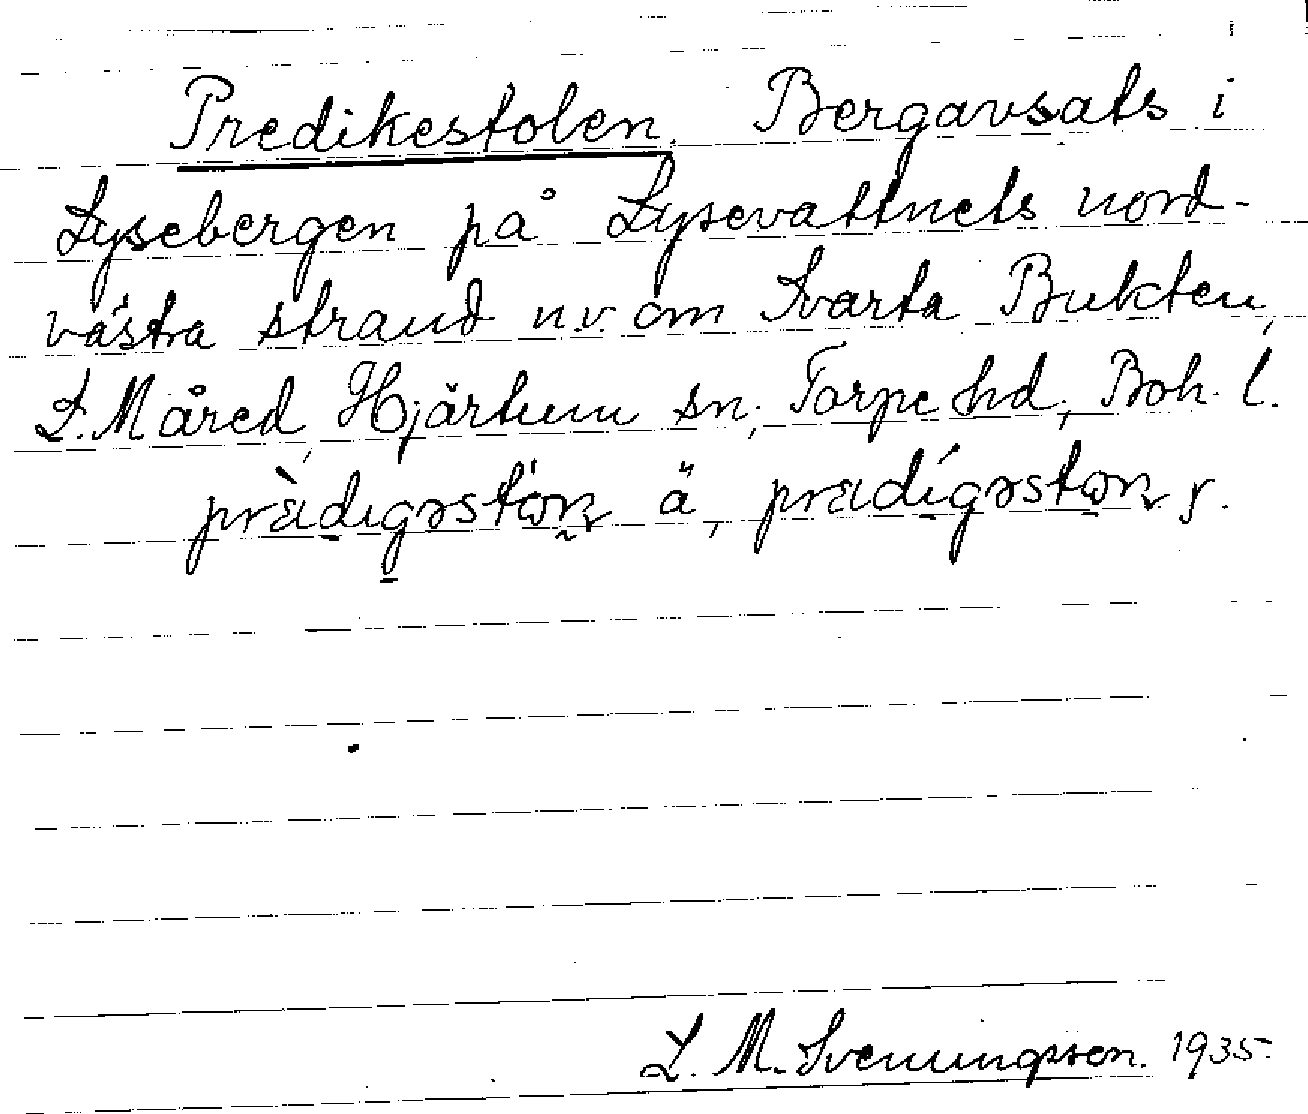 Predikestolen. Bergavsats i
Lysebergen på Lysevattnets nord-
västra strand n.v. om Svarta Bukten,
L. Måred, Hjärtum sn; Torpe hd; Boh. l.
prὲdıgəstωn ä, prɛdígəstωn y.
L. M. Svenungsson. 1935.